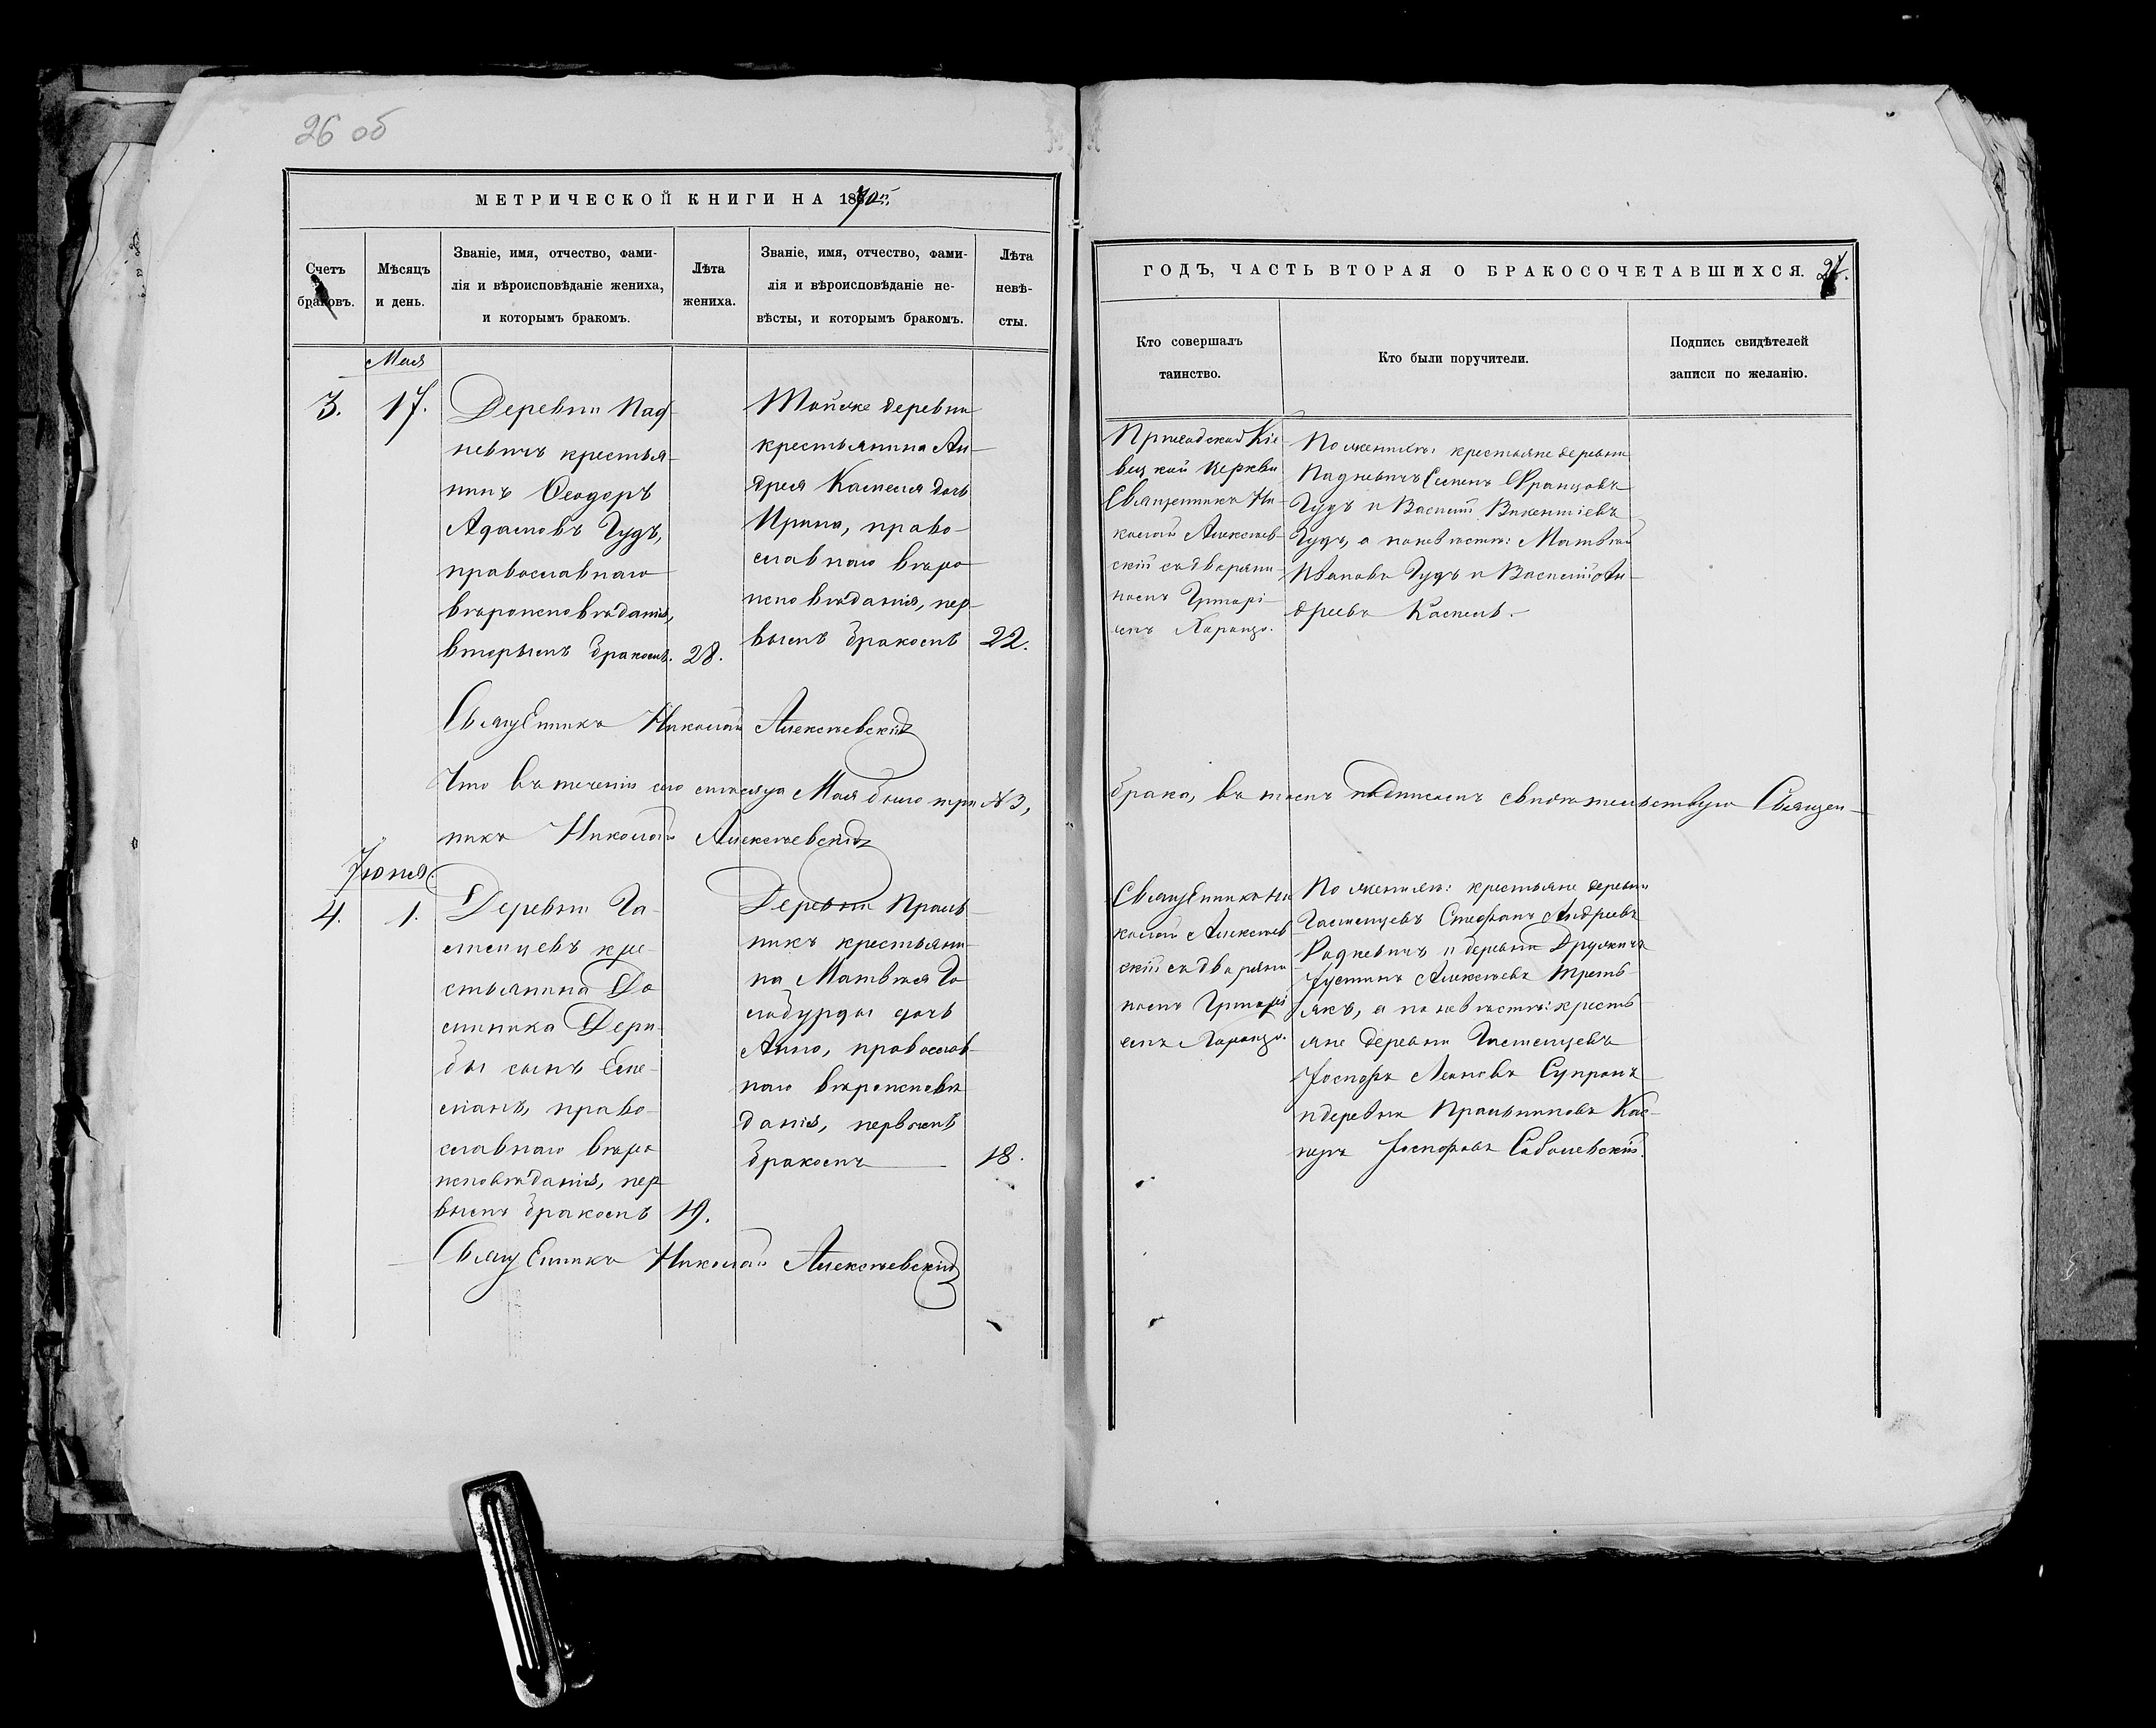 26 об
МЕТРИЧЕСКОЙ КНИГИ НА 1870
Счетъ
браковъ.
Мѣсяцъ
и день.
Званіе, имя, отчество, фами-
лія и вѣроисповѣданіе жениха,
и которымъ бракомъ.
Лѣта
жениха.
Званіе, имя, отчество, фами-
лія и вѣроисповѣданіе не-
вѣсты, и которымъ бракомъ.
Лѣта
невѣ-
сты.
Мая
3.
17.
Деревни Пад-
невичъ крестья-
нинъ Ѳеодоръ
Адамовъ Гудъ,
православнаго
вѣроисповѣданія,
вторымъ бракомъ.
28.
Тойже деревни
крестьянина Ан-
дрея Каспеля дочь
Ирина, право-
славнаго вѣро
исповѣданія, пер-
вымъ бракомъ
22.
Священникъ Николай Алексѣевскій
Что въ теченіи сего мѣсяца Мая было три № 3,
никъ Николай Алексѣевскій
Іюня
4.
1.
Деревни Га-
стьянина До
миника Дери-
бы сынъ
право-
славнаго вѣро
исповѣданія, пер
вымъ бракомъ
19.
Деревни
никъ крестьяни-
на Матвѣя Го
лодурды дочь
Анна, православ-
наго вѣроисповѣ
данія, первымъ
бракомъ
18.
Священникъ Николай Алексѣевскій
ГОДЪ, ЧАСТЬ ВТОРАЯ О БРАКОСОЧЕТАВШИХСЯ. 27.
Кто совершалъ
таинство.
Кто были поручители.
Подпись свидѣтелей
записи по желанію.
Приходской Кіе-
вецкой церкви
Священникъ Ни-
колай Алексѣев-
скій съ дьячкомъ
Григорі-
емъ
По женихѣ: крестьяне деревни
Падневичъ Семенъ Францовъ
Гудъ и Василій Викентіевъ
Гудъ, а по невѣстѣ: Матвѣй
Ивановъ Гудъ и Василій Ан-
дреевъ Каспель.
брака, въ томъ подписомъ свидѣтельствую Священ-
Священникъ Ни
колай Алексѣев
скій съ
Григорі
емъ
По женихѣ: крестьяне деревни
Стефанъ Андреевъ
Радкевичъ и деревни
Іустинъ Алексѣевъ Треть-
якъ, а по невѣстѣ: кресть
яне деревни
Іосифъ Леоновъ Супронъ
и деревни Кас-
перъ Іосифовъ Соболевскій.